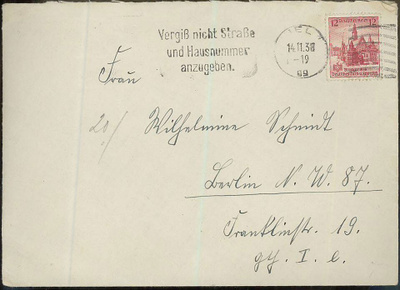 Vergiß nicht Straße
und Hausnummer
anzugeben.
14.11.38
-19
12 12
Frau
20/
Wilhelmine Schmidt
Berlin N. W. 87.
Franklinstr. 19.